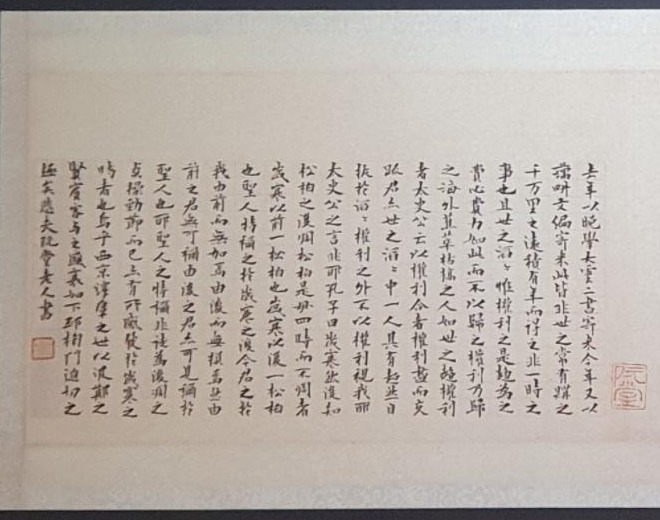 去年以晚學大雲二書寄來今年又以
藕耕文編寄來此皆非世之常有購之
千万里之遠積有年而得之非一時之
事也且世之滔〻惟權利之是趨爲之
費心費力如此而不以歸之權利乃歸
之海外蕉萃枯槁之人如世之趨權利
者太史公云以權利合者權利盡而交
疎君亦世之滔〻中一人其有超然自
拔於滔〻權利之外不以權利視我耶
太史公之言非耶孔子曰歲寒然後知
松柏之後凋松柏是毋四時而不凋者
歲寒以前一松柏也歲寒以後一松柏
也聖人特稱之於歲寒之後今君之於
我由前而無加焉由後而無損焉然由
前之君無可稱由後之君亦可見稱於
聖人也耶聖人之特稱非徒爲後凋之
貞操勁節而已亦有所感發於歲寒之
時者也烏乎西京淳厚之世以汲鄭之
賢賓客與之盛衰如下邳榜門迫切之
極矣悲夫阮堂老人書
阮堂